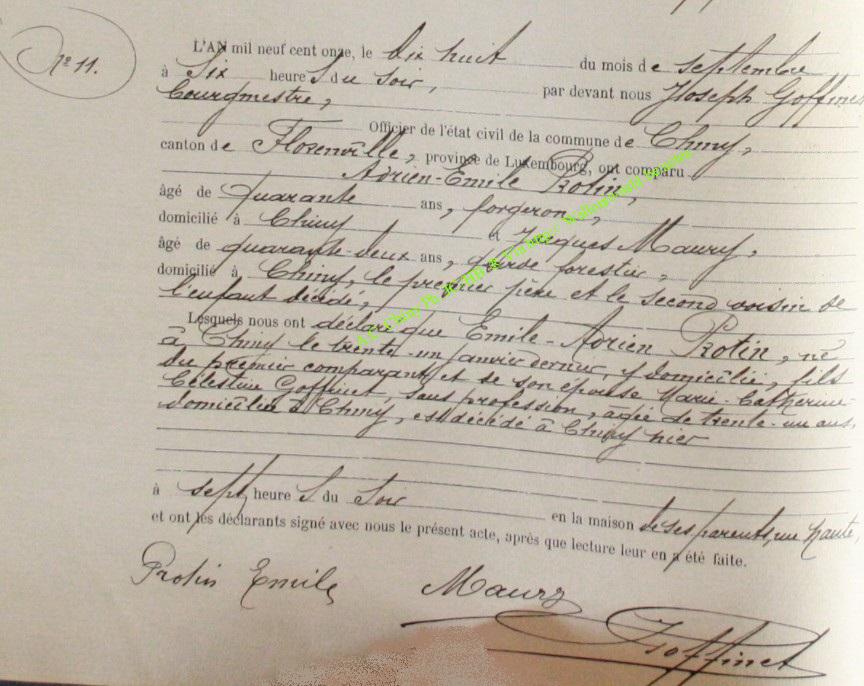 N° 11.
L'AN mil neuf cent onze, le dix huit du mois de septembre
à six heures du soir, par devant nous Joseph Goffinet
bourgmestre,
Officier de l'état civil de la commune de Chiny,
canton de Florenville, province de Luxembourg, ont comparu
Adrien-Emile Protin,
âgé de quarante ans, forgeron,
domicilié à Chiny et Jacques Maury,
âgé de quarante-deux ans, garde forestier,
domicilié à Chiny, le premier père et le second voisin de
l'enfant décédé,
Lesquels nous ont déclaré que Emile-Adrien Protin, né
à Chiny le trente-un janvier dernier, y domicilié, fils
du premier comparant et de son épouse Marie-Catherine
Célestine Goffinet, sans profession, agée de trente-un ans,
domiciliée à Chiny, est décédé à Chiny hier
à sept heures du soir en la maison de ses parents, rue haute,
et ont les déclarants signé avec nous le présent acte, après que lecture leur en a été faite.
Protin Emile Maury
JGoffinet